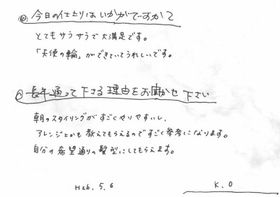 ①今日の仕上りはいかがですか?
とてもサラサラで大満足です。
「天使の輪」ができていてうれしいです。
②長年通って下さる理由をお聞かせ下さい
朝のスタイリングがすごくやりやすいし、
アレンジとかも教えてもらえるのですごく参考になります。
自分の希望通りの髪型にしてもらえます。
H26.5.6
K.O